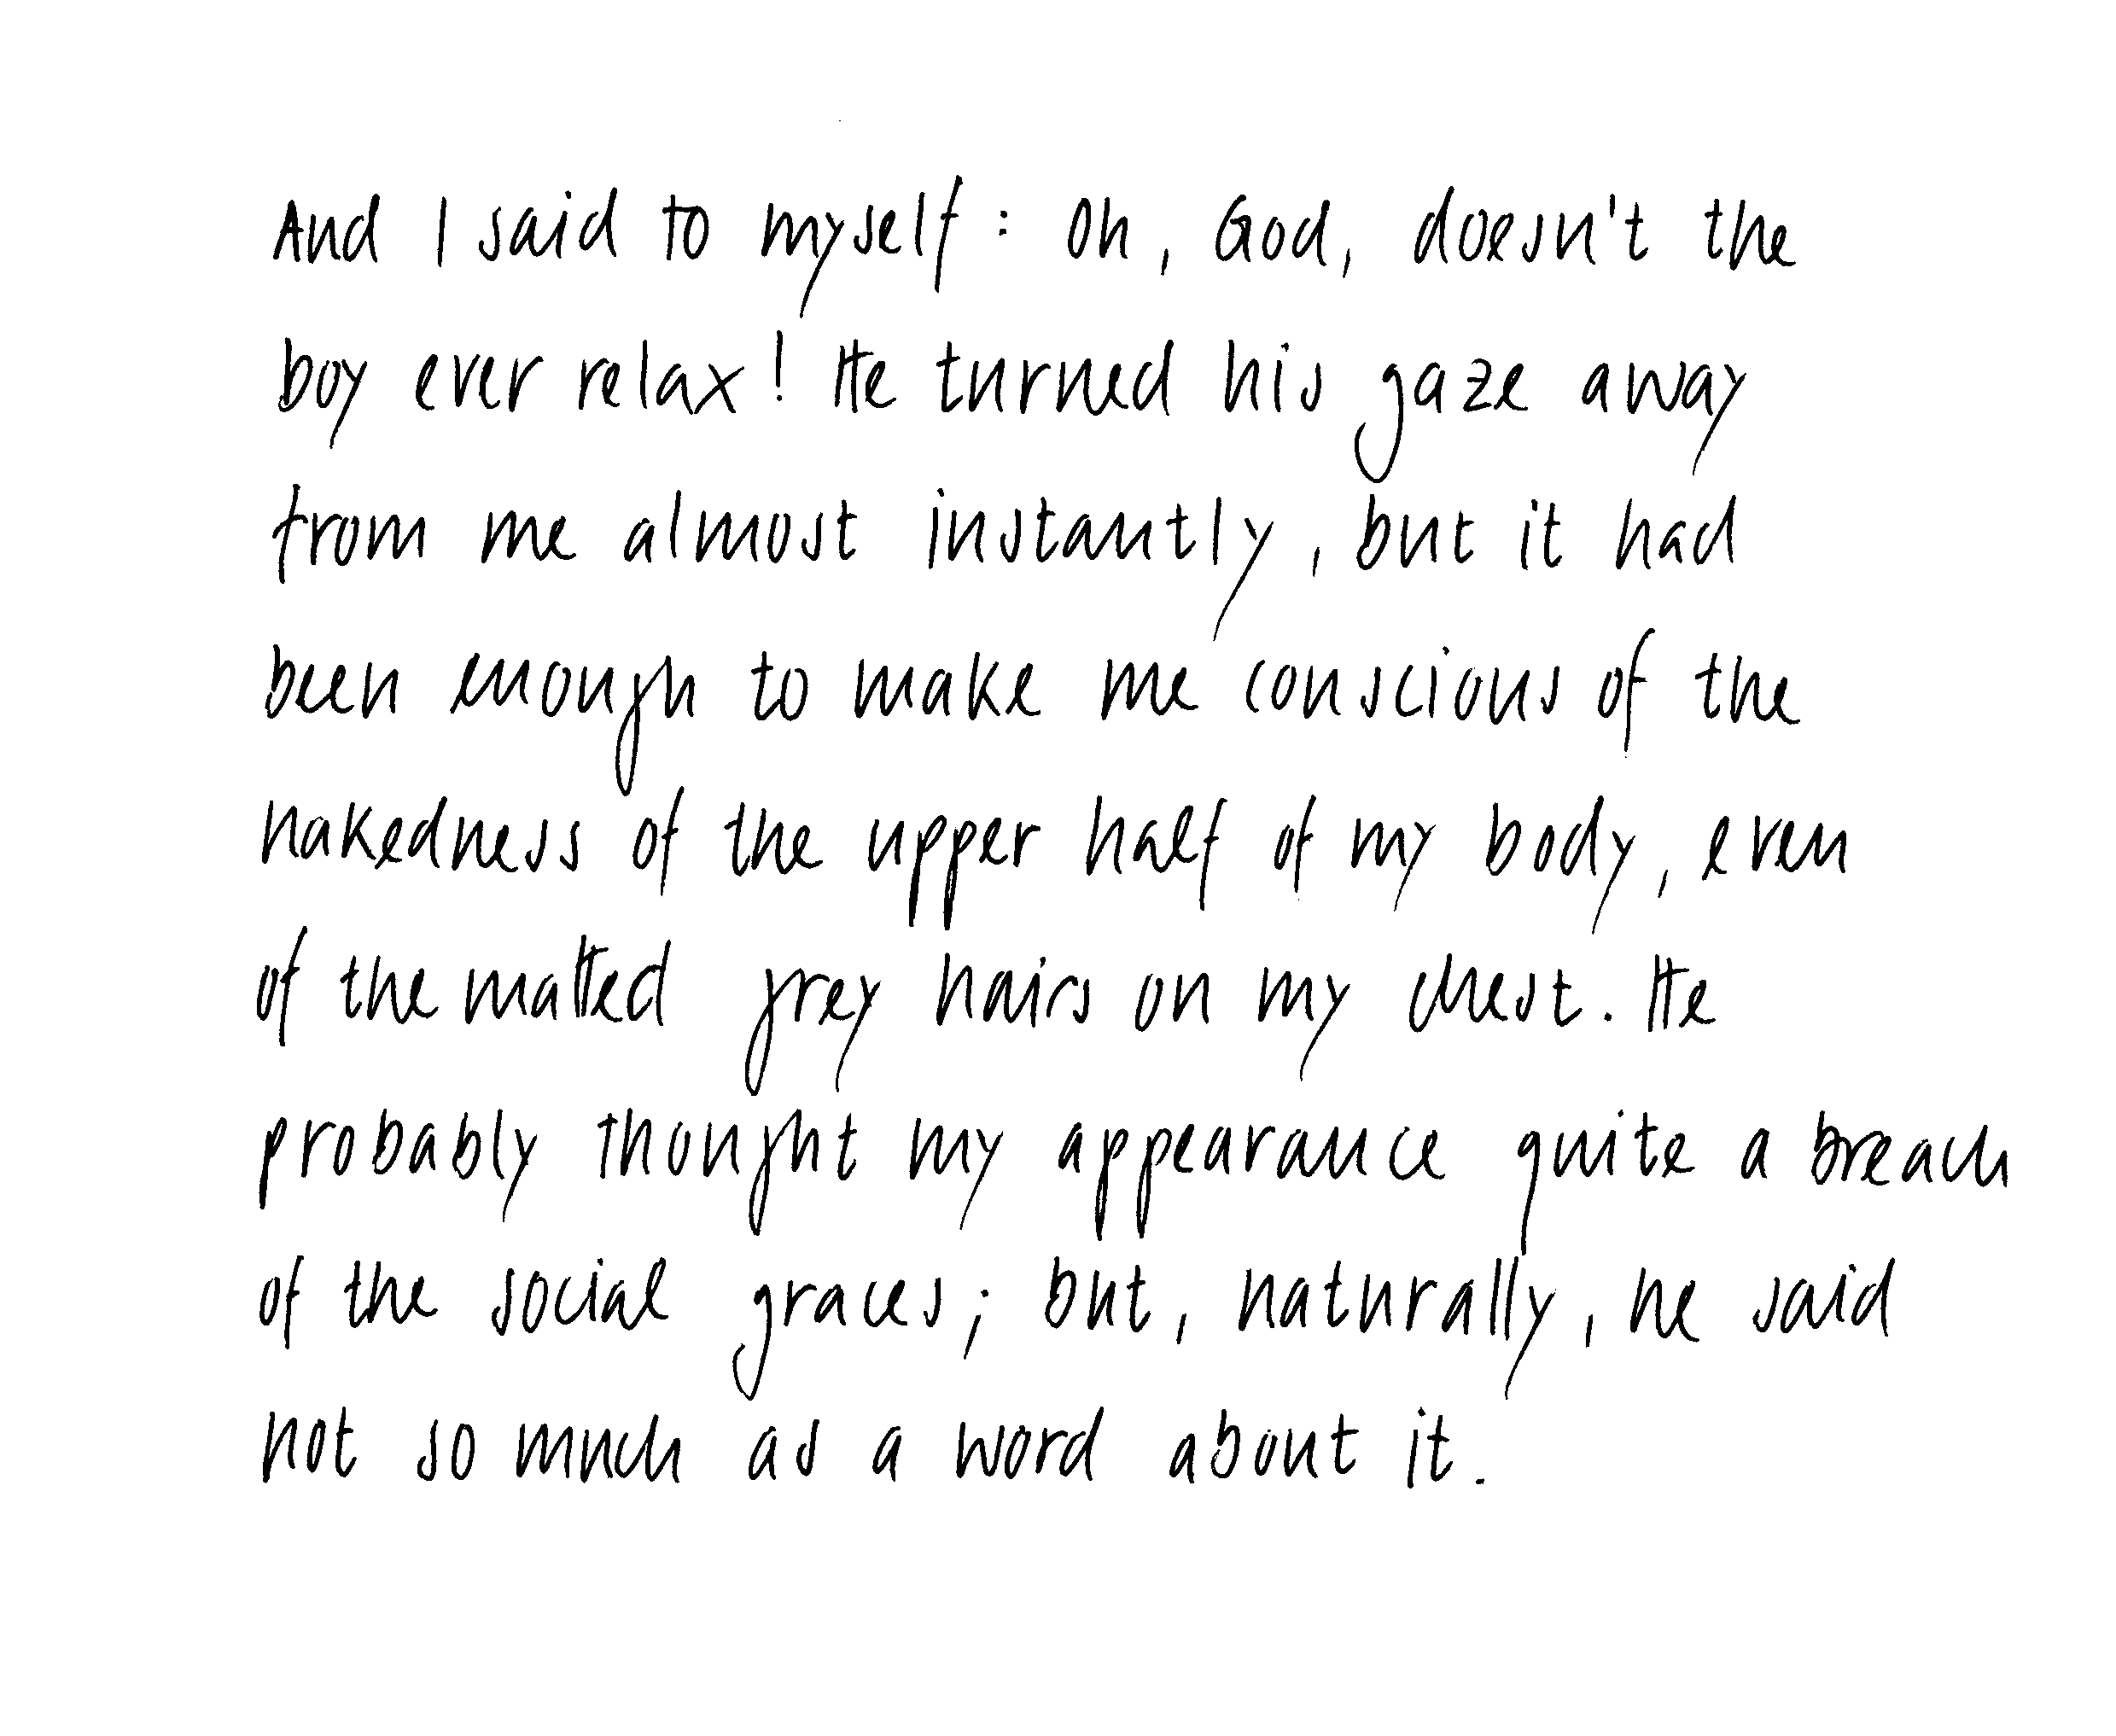 And I said to myself: Oh, God, doesn't the
boy ever relax! He turned his gaze away
from me almost instantly, but it had
been enough to make me conscious of the
nakedness of the upper half of my body, even
of the matted grey hairs on my chest. He
probably thought my appearance quite a breach
of the social graces; but, naturally, he said
not so much as a word about it.